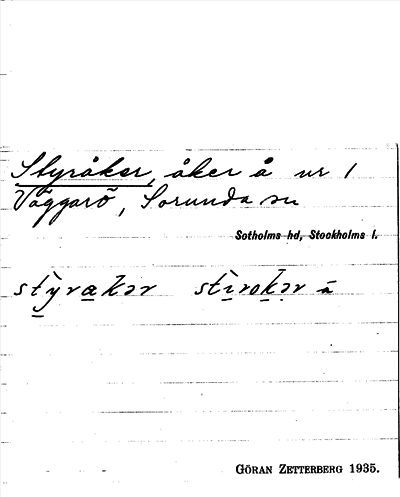 Styråker, åker å nr 1
Väggarö, Sorunda sn
Sotholms hd, Stockholms l.
stỳrakər stìrokər å
GÖRAN ZETTERBERG 1935.